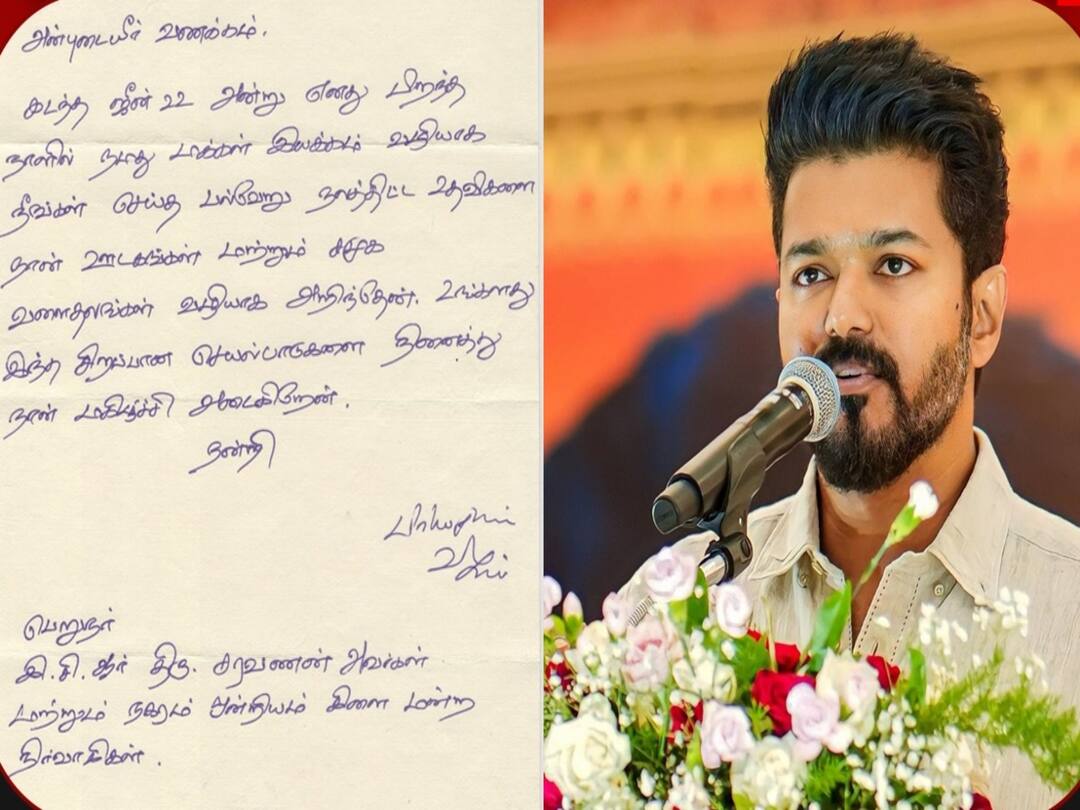 அன்புடையீர் வணக்கம்.
கடந்த ஜூன் 22 அன்று எனது பிறந்த
நாளில் நமது மக்கள் இயக்கம் வழியாக
நீங்கள் செய்த பல்வேறு நலத்திட்ட உதவிகளை
நான் ஊடகங்கள் மற்றும் சமூக
வளைதலங்கள் வழியாக அறிந்தேன். உங்களது
இந்த சிறப்பான செயல்பாடுகளை நினைத்து
நான் மகிழ்ச்சி அடைகிறேன்.
நன்றி
பிரியமுடன்
விஜய்
பெறுநர்
இ.சி.ஆர் திரு. சரவணன் அவர்கள்
மற்றும் நகரம் ஒன்றியம் கிளை மன்ற
நிர்வாகிகள்.